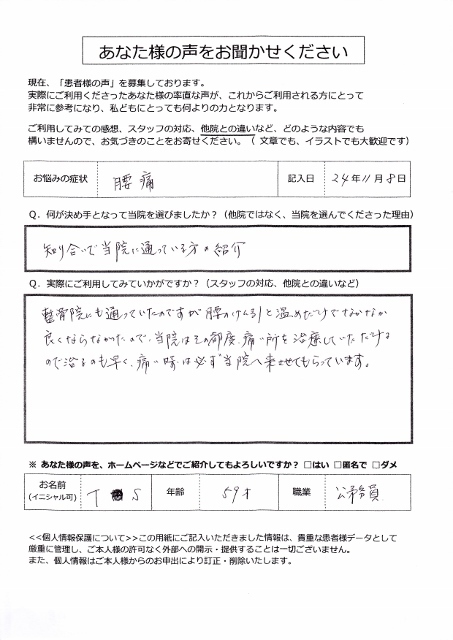 あなた様の声をお聞かせください
現在、「患者様の声」を募集しております。
実際にご利用くださったあなた様の率直な声が、これからご利用される方にとって
非常に参考になり、私どもにとっても何よりの力となります。
ご利用してみての感想、スタッフの対応、他院との違いなど、どのような内容でも
構いませんので、お気づきのことをお寄せください。（ 文章でも、イラストでも大歓迎です）
お悩みの症状 腰痛 記入日 24年11月8日
Q. 何が決め手となって当院を選びましたか？（他院ではなく、当院を選んでくださった理由）
知り合いで当院に通っている方の紹介
Q. 実際にご利用してみていかがですか？（スタッフの対応、他院との違いなど）
整骨院にも通っていたのですが腰のけん引と温めだけでなかなか
良くならなかったので、当院はその都度、痛い所を治療していただける
ので治るのも早く、痛い時は必ず当院へ来させてもらっています。
※ あなた様の声を、ホームページなどでご紹介してもよろしいですか？ □はい □匿名で □ダメ
お名前
(イニシャル可) T S 年齢 59才 職業 公務員
<<個人情報保護について>>この用紙にご記入いただきました情報は、貴重な患者様データとして
厳重に管理し、ご本人様の許可なく外部への開示・提供することは一切ございません。
また、個人情報はご本人様からのお申出により訂正・削除いたします。